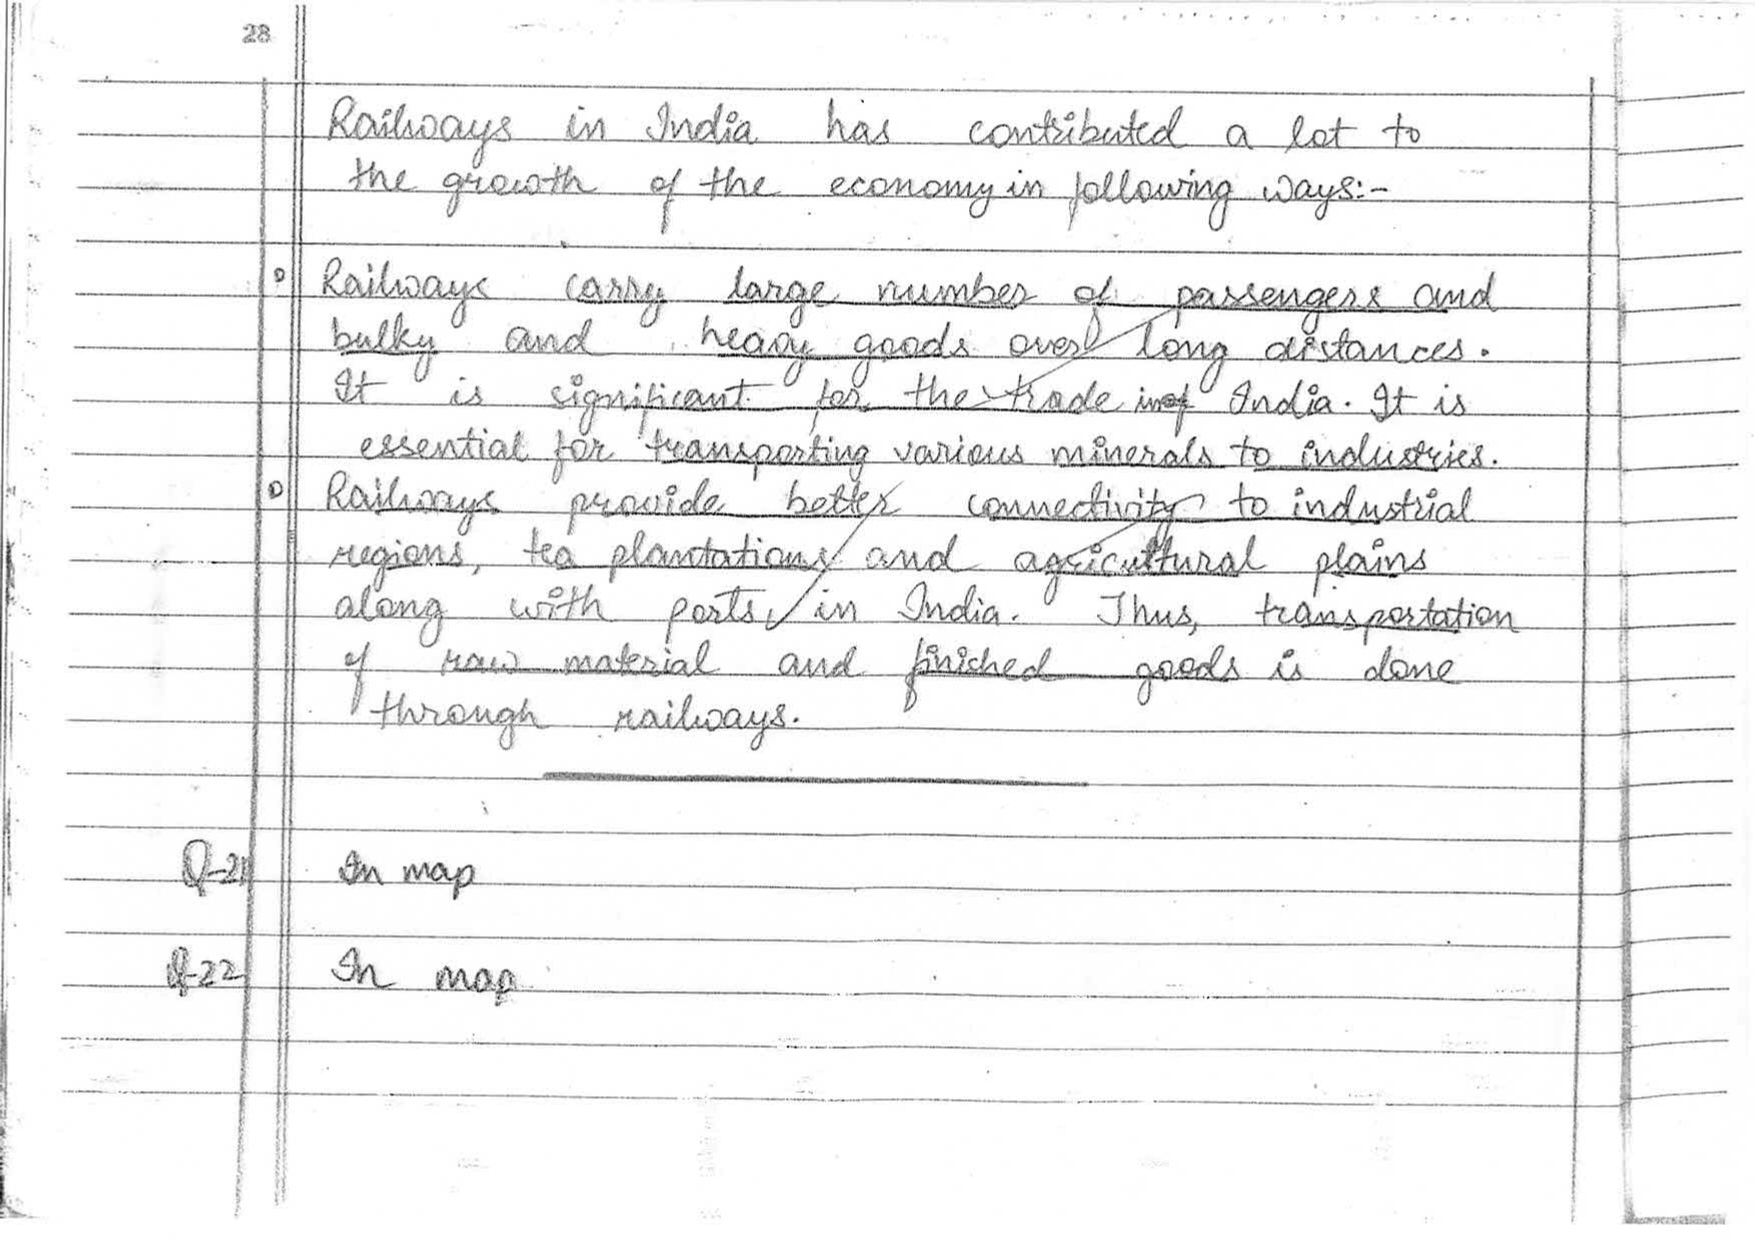 28
Railways in India has contributed a lot to
the growth of the economy in following ways:-
Railways carry large number of passengers and
bulky and heavy goods over long distances.
It is significant for the trade in of India. It is
essential for transporting various minerals to industries.
Railways provide better connectivity to industrial
regions, tea plantations and agricultural plains
along with ports, in India. Thus, transportation
of raw material and finished goods is done
through railways.
Q-21 In map
Q-22 In map